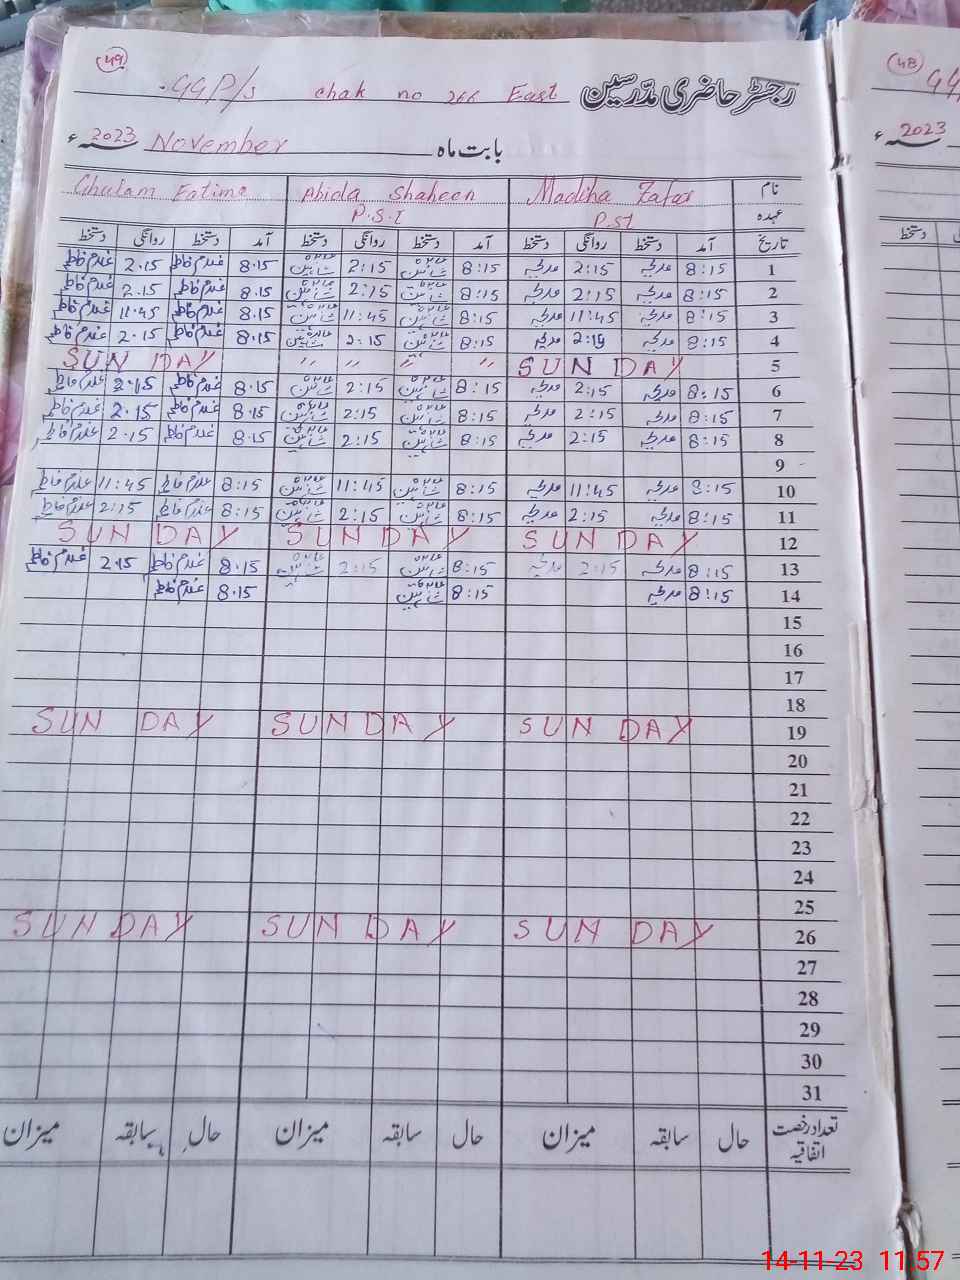 49
GGP/s chak no 266 East رجسٹر حاضری مدرسین
بابت ماہ November سنہ 2023ء
نام Madiha Zafar Abida Shaheen Ghulam Fatima
عہدہ P.ST P.S.T
تاریخ آمد دستخط روانگی دستخط آمد دستخط روانگی دستخط آمد دستخط روانگی دستخط
1 8:15 مدیحہ 2:15 مدیحہ 8:15 عابدہ شاہین 2:15 عابدہ شاہین 8.15 غلام فاطمہ 2.15 غلام فاطمہ
2 8:15 مدیحہ 2:15 مدیحہ 8:15 عابدہ شاہین 2:15 عابدہ شاہین 8.15 غلام فاطمہ 2.15 غلام فاطمہ
3 8:15 مدیحہ 11:45 مدیحہ 8:15 عابدہ شاہین 11:45 عابدہ شاہین 8.15 غلام فاطمہ 11.45 غلام فاطمہ
4 8:15 مدیحہ 2:15 مدیحہ 8:15 عابدہ شاہین 2:15 عابدہ شاہین 8.15 غلام فاطمہ 2.15 غلام فاطمہ
5 SUNDAY " " " " SUNDAY
6 8:15 مدیحہ 2:15 مدیحہ 8:15 عابدہ شاہین 2:15 عابدہ شاہین 8.15 غلام فاطمہ 2.15 غلام فاطمہ
7 8:15 مدیحہ 2:15 مدیحہ 8:15 عابدہ شاہین 2:15 عابدہ شاہین 8.15 غلام فاطمہ 2.15 غلام فاطمہ
8 8:15 مدیحہ 2:15 مدیحہ 8:15 عابدہ شاہین 2:15 عابدہ شاہین 8.15 غلام فاطمہ 2.15 غلام فاطمہ
9
10 8:15 مدیحہ 11:45 مدیحہ 8:15 عابدہ شاہین 11:45 عابدہ شاہین 8:15 غلام فاطمہ 11:45 غلام فاطمہ
11 8:15 مدیحہ 2:15 مدیحہ 8:15 عابدہ شاہین 2:15 عابدہ شاہین 8:15 غلام فاطمہ 2:15 غلام فاطمہ
12 SUNDAY SUNDAY SUNDAY
13 8:15 مدیحہ 2:15 مدیحہ 8:15 عابدہ شاہین 2:15 عابدہ شاہین 8.15 غلام فاطمہ 2.15 غلام فاطمہ
14 8:15 مدیحہ 8:15 عابدہ شاہین 8.15 غلام فاطمہ
15
16
17
18
19 SUNDAY SUNDAY SUNDAY
20
21
22
23
24
25
26 SUNDAY SUNDAY SUNDAY
27
28
29
30
31
تعداد رخصت اتفاقیہ حال سابقہ میزان حال سابقہ میزان حال سابقہ میزان
48
سنہ 2023ء
دستخط
14-11-23 11:57